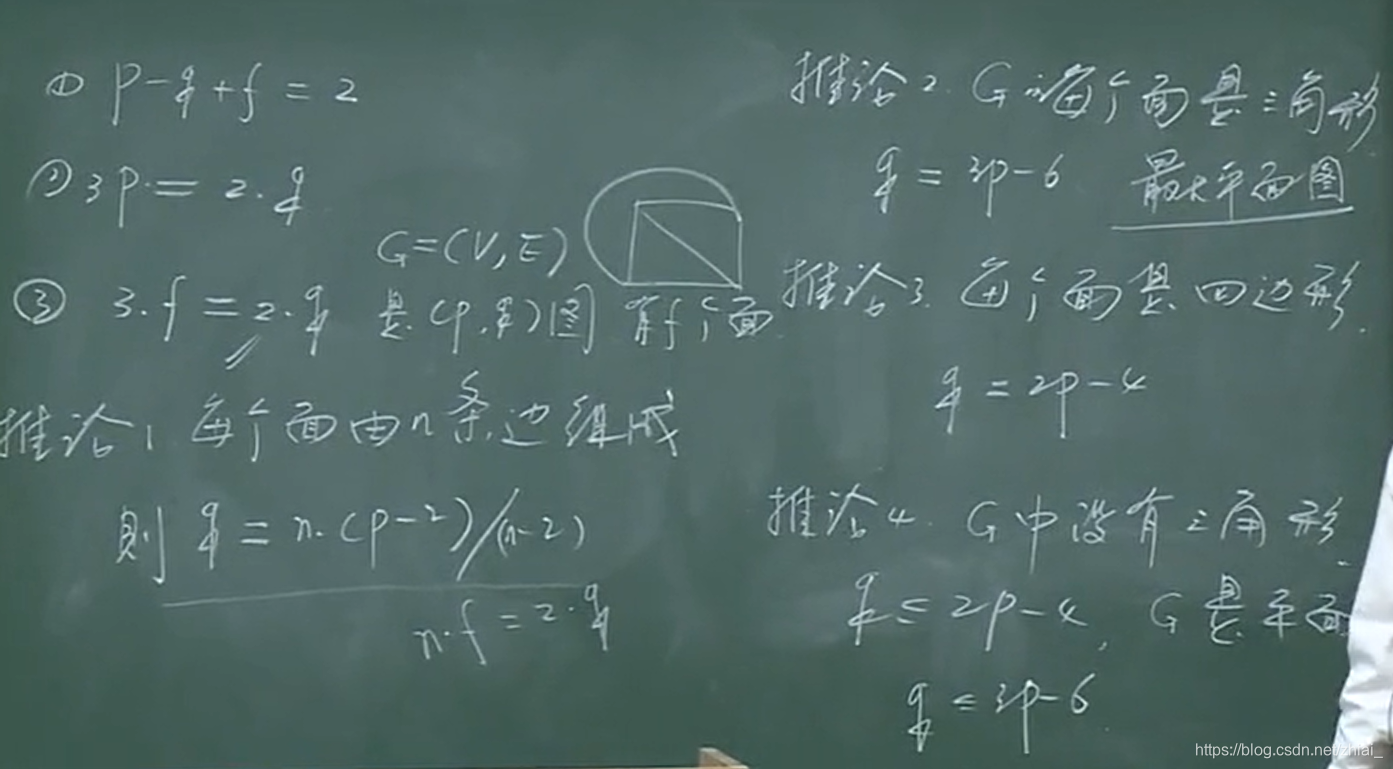 ① p-q+f=2
② 3p=2·q
G=(V,E)
③ 3·f=2·q 是(p,q)图 有f个面
推论1 每个面由n条边组成
则 q=n·(p-2)/(n-2)
n·f=2·q
推论2. G的每个面是三角形.
q=3p-6 最大平面图
推论3. 每个面是四边形.
q=2p-4
推论4. G中没有三角形.
q≤2p-4, G是平面
q≤3p-6
https://blog.csdn.net/zhiai_